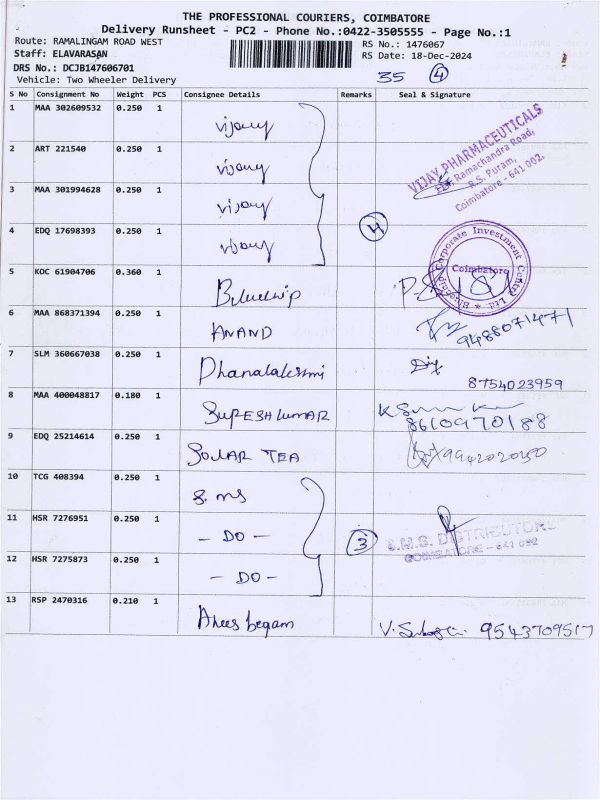 THE PROFESSIONAL COURIERS, COIMBATORE
Delivery Runsheet - PC2 - Phone No.:0422-3505555 - Page No.:1
Route: RAMALINGAM ROAD WEST
RS No.: 1476067
Staff: ELAVARASAN
RS Date: 18-Dec-2024
DRS No.: DCJB147606701
Vehicle: Two Wheeler Delivery
35 4
S No Consignment No Weight PCS Consignee Details Remarks Seal & Signature
1 MAA 302609532 0.250 1 vijay
2 ART 221540 0.250 1 vijay
VIJAY PHARMACEUTICALS
Ramachandra Road,
R.S. Puram,
Coimbatore - 641 002.
3 MAA 301994628 0.250 1 vijay
4 EDQ 17698393 0.250 1 vijay
4
Bluechip Corporate Investment Center Ltd
Coimbatore
5 KOC 61904706 0.360 1 Bluechip
6 MAA 868371394 0.250 1 ANAND 9488071471
7 SLM 360667038 0.250 1 Dhanalakshmi 8754023959
8 MAA 400048817 0.180 1 SURESH KUMAR
8610970188
9 EDQ 25214614 0.250 1 SOLAR TEA 9942020150
10 TCG 408394 0.250 1 S. ms
11 HSR 7276951 0.250 1 - DO - 3
S.M.S. DISTRIBUTORS
COIMBATORE - 641 002
12 HSR 7275873 0.250 1 - DO -
13 RSP 2470316 0.210 1 Anees begam 9543709517